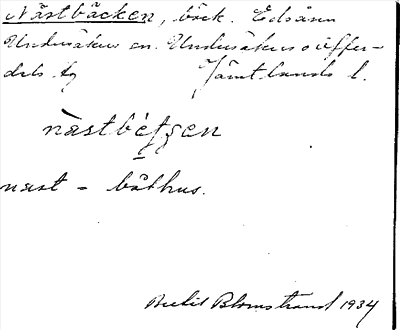 Nästbäcken, bäck. Edsåsen
Undersåkers sn. Undersåkers o Offer-
dals tg Jämtlands l.
nast = båthus.
Blomstrand 1934